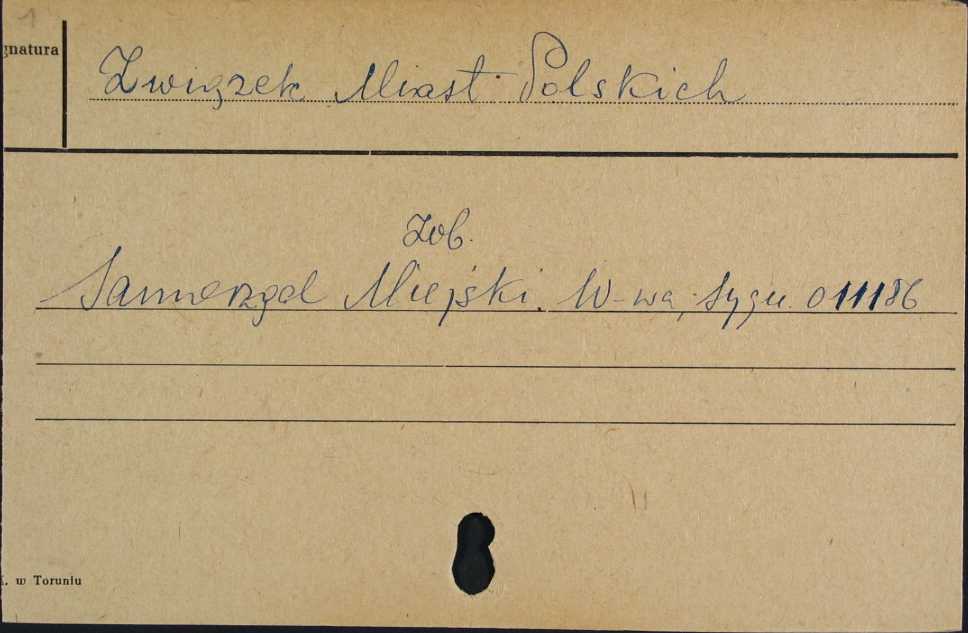 1
gnatura
Związek Miast Polskich
Zob.
Samorząd Miejski. W-wa, Sygn. 011186
K. w Toruniu